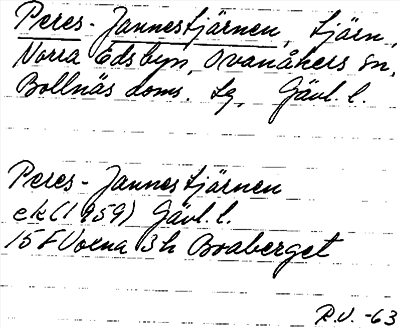 Peres-Jannestjärnen, tjärn,
Norra Edsbyn, Ovanåkers sn,
Bollnäs doms. lg, Gävl. l.
Peres-Jannestjärnen
ek (1959) Gävl. l.
15 F Voxna 3h Boaberget
R.U. -63